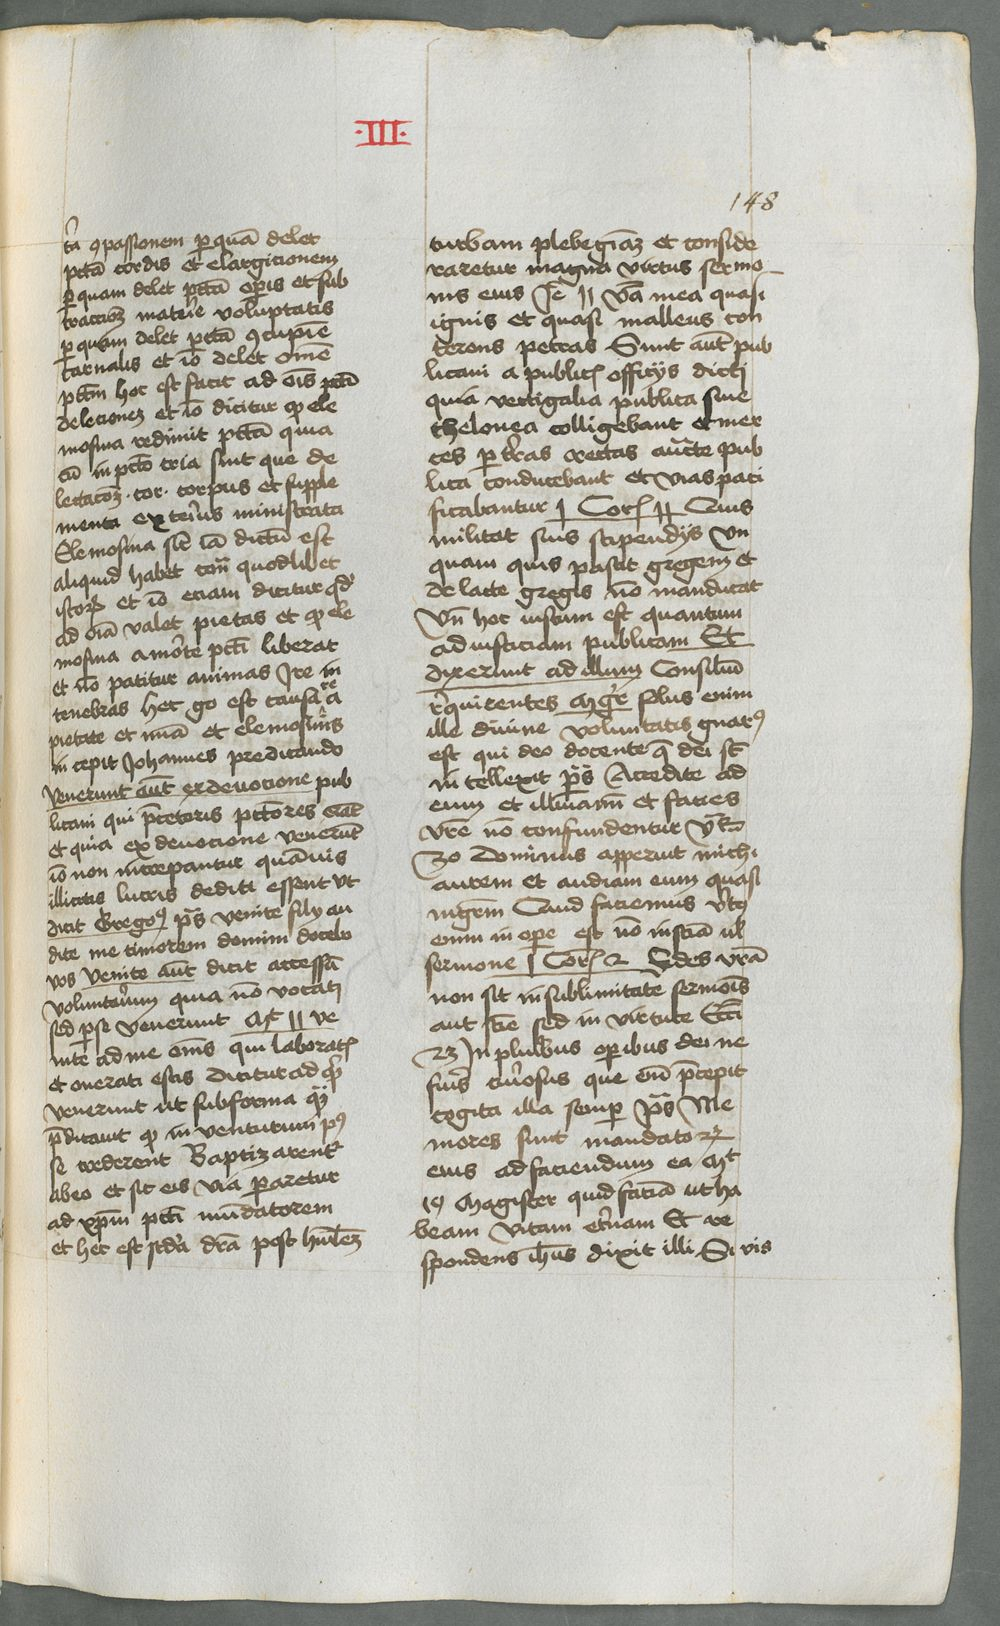 ·III·
148
tm̄ ꝯpassionem ꝑ quā delet
pctā cordis et elargitionem
ꝑ quam delet pctā oꝑis et sub
tractōꝫ mat̄ie voluptatis
ꝑ quam delet pctā ꝯcupīe
carnalis et iō delet om̄e
pctm̄ hoc est facit ad oīs pctī
deletioneꝫ et iō dicitur ꝙ ele
mosina redimit pctā quia
cū in pctō tria sint que de
lectacōꝫ · cor · corpus et supple
menta exteriꝰ ministrata
Elemosina sic̄ iā dictū est
aliquid habet con̄ quodlibet
istoꝝ et iō etiam dicitur ꝙ
ad oīa valet pietas et ꝙ ele
mosina a mōrte pctī liberat
et nō patitur animas Ire in
tenebras hec gͦ est causa re a
pietate et mīa et elemosinis
in cepit Johannes predicando
Venerunt aūt ex deuocione pub
licani qui p̄ceteris pctōres erāt
et quia ex deuocione venerūt
iō non increpantur quāuis
illicitis lucris dediti essent vt
dicit Gregoꝰ pˢ̄ venite filÿ au
dite me timorem domini docebo
vos Venite aūt dicit accessū
voluntariū quia nō vocati
sed ꝑ se venerunt Mt 11 ve
nite ad me om̄s qui laboratꝭ
et onerati estis dicitur ad qͥd
venerunt ut sub forma qͣ
p̄dicauit ꝙ in venturum xpꝫ
se crederent Baptizarentꝛ
ab eo et sic eis via pararetur
ad xp̄m pctī mūdatorem
et hec est scd̄a drā post humīleꝫ
turbam plebegiaꝫ et conside
raretur magna virtus sermo
nis eius Je 11 vba mea quasi
ignis et quasi malleus con
terens petras Sunt aūt pub
licani a publicꝭ offitÿs dicti
quia vectigalia publica siue
thelonea colligebant et mer
ces ꝑ t̄ras rectas auc̄te pub
lica conducebant et vias paci
ficabantur 1 Corꝭ 11 Quis
militat suis stipendÿs vn
quam quis pascit gregem et
de lacte gregis nō manducat
Vn̄ hoc iustum est quantum
ad iusticiam publicam Et
dixerunt ad illum Consiliū
requirentes Mgr̄ solus enim
ille diuine voluntatis gnarꝰ
est qui deo docente q̄ dei st̄
in tellexit pˢ̄ Accedite ad
eum et illūiamī et facies
vr̄e nō confundentur ysa
30 Dominus apperuit michi
aurem et audiam eum quasi
mgrm̄ Quid faciemus vtꝰ
enim in oꝑe est nō in sciā ul̄
sermone 1 Corꝭ 2 Fides vr̄a
non sit in sublimitate sermoīs
aut sciē sed in virtute Eccī
23 In pluribus oꝑibus dei ne
fuis curiosus que em̄ p̄cepit
cogita illa semꝑ pˢ̄ Me
mores sunt mandatoꝝ
eius ad faciendum ea Mt
19 Magister quid faciā ut ha
beam vitam et̄nam Et re
spondens ihūs dixit illi Si vis